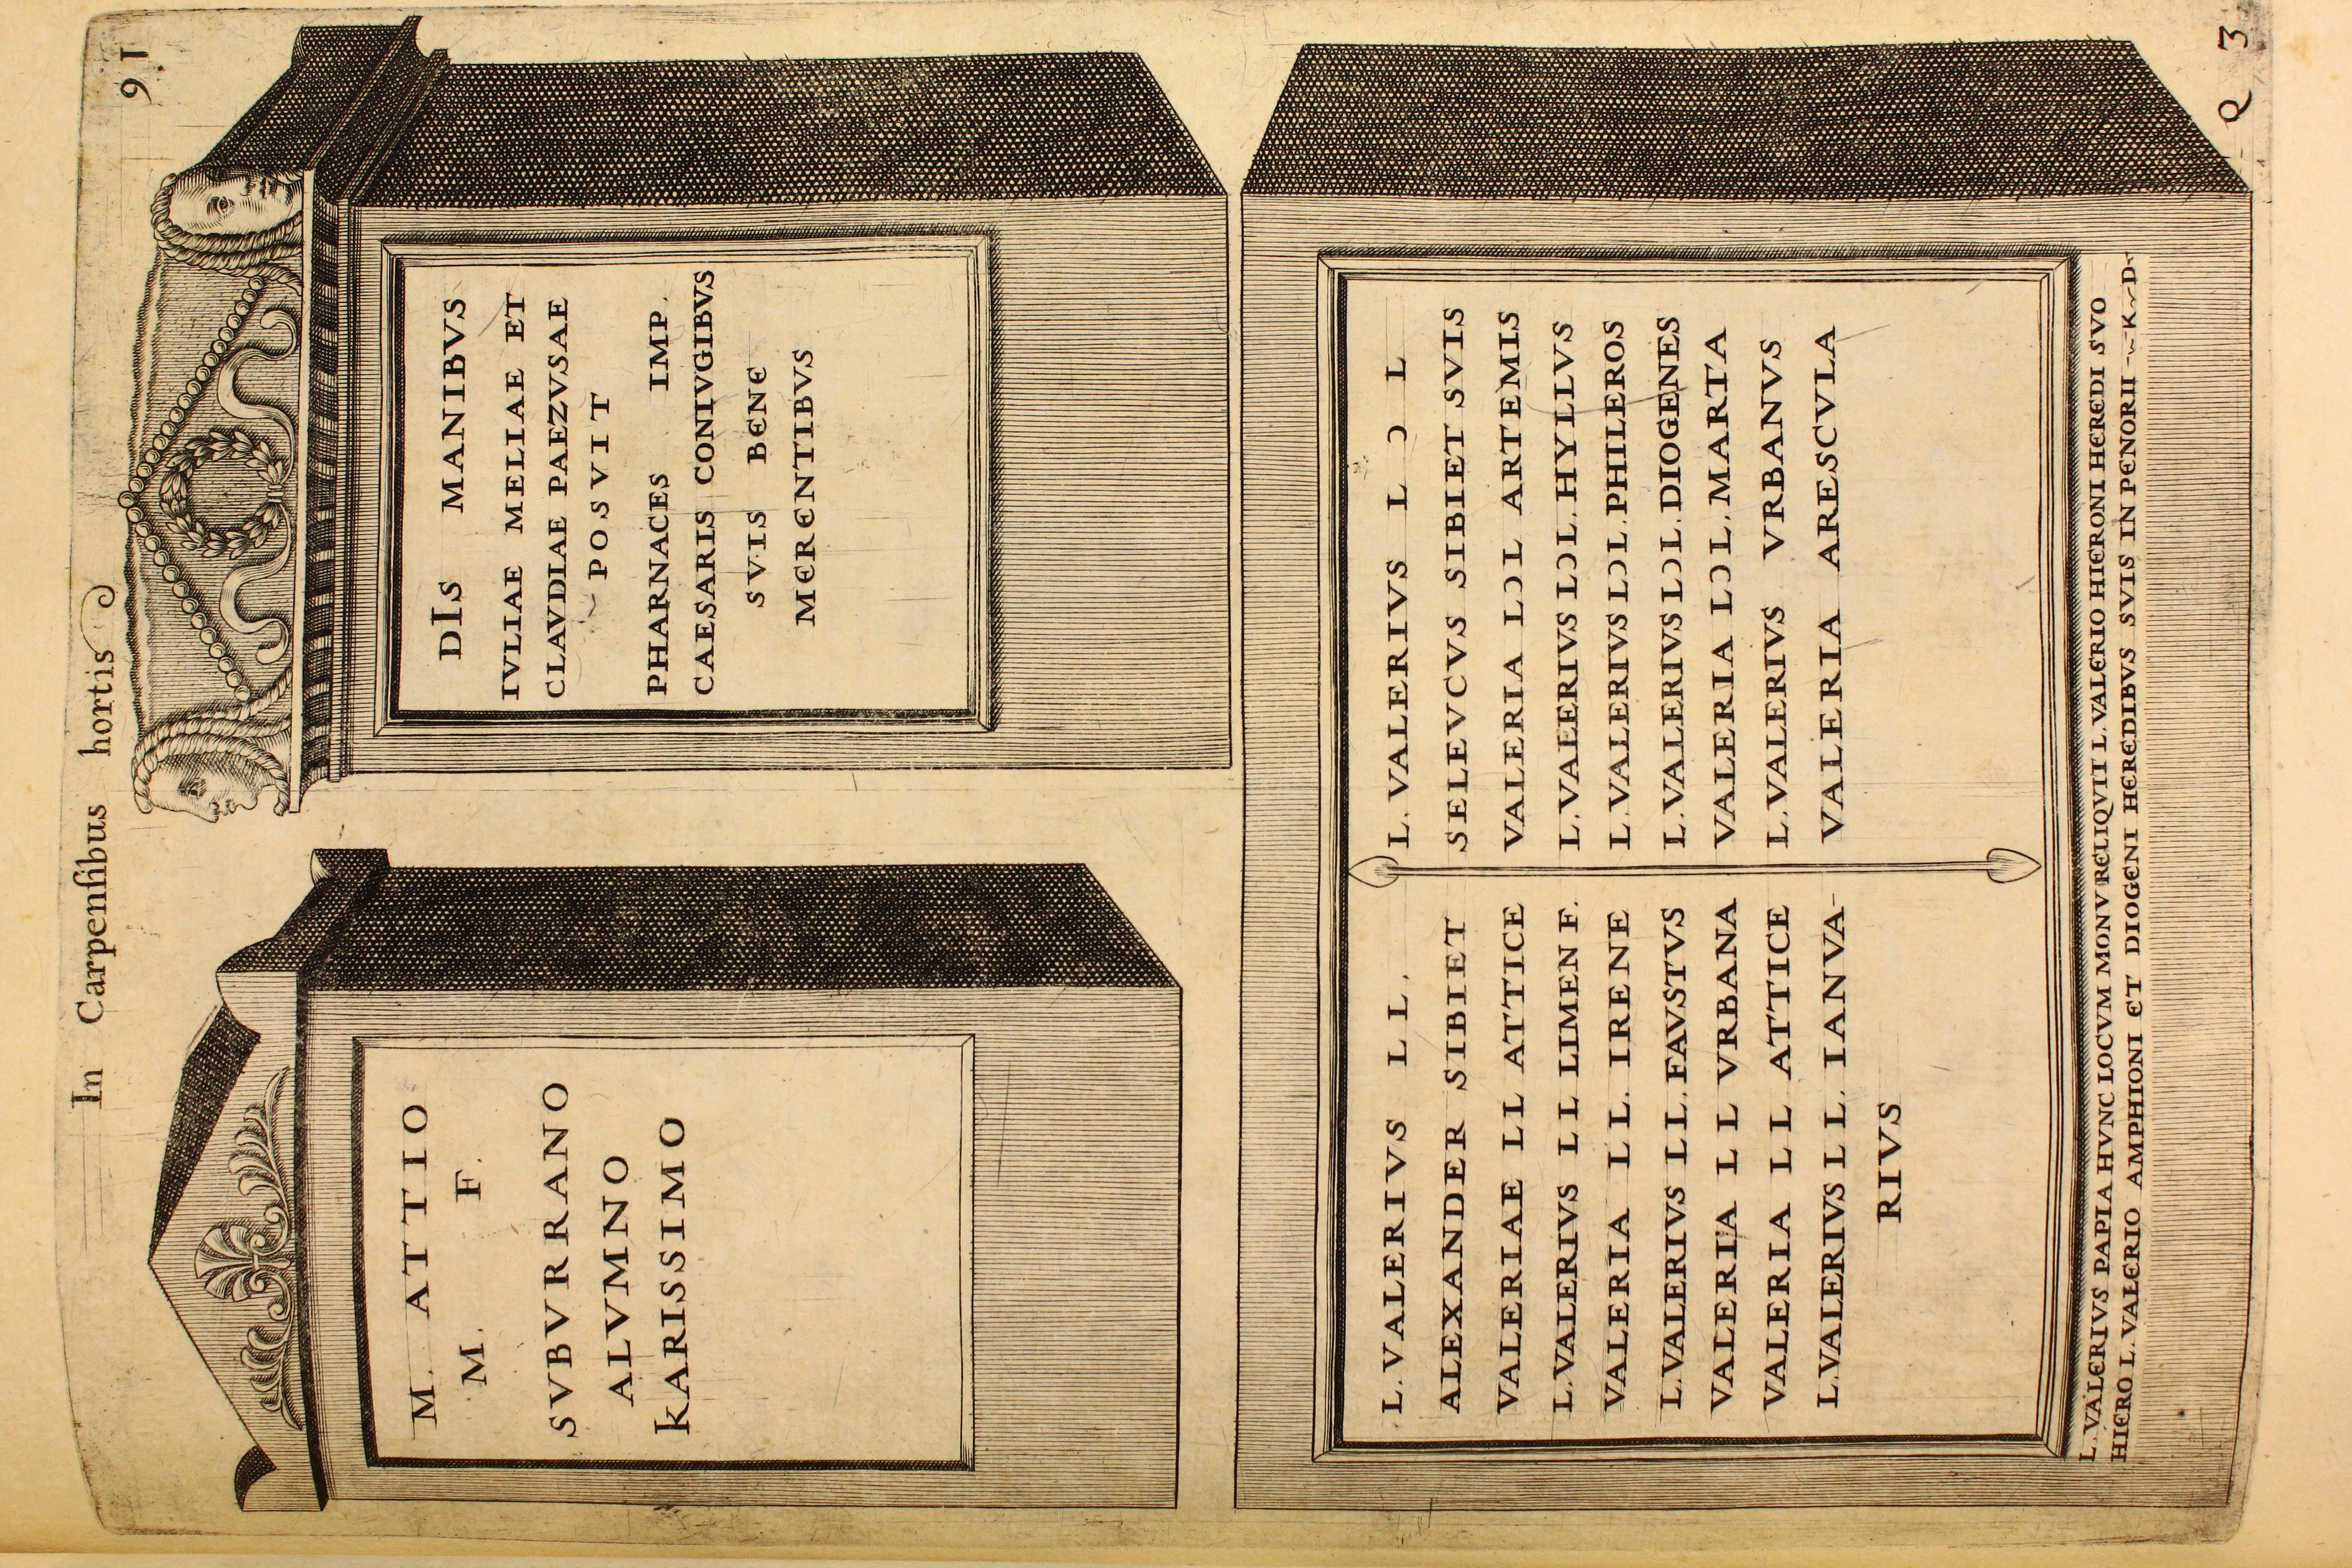 In Carpensibus hortis
91
M. ATTIO
M. F.
SVBVRRANO
ALVMNO
KARISSIMO
DIS MANIBVS
IVLIAE MELIAE ET
CLAVDIAE PAEZVSAE
POSVIT
PHARNACES IMP.
CAESARIS CONIVGIBVS
SVIS BENE
MERENTIBVS
L. VALERIVS L L.
ALEXANDER SIBI ET
VALERIAE L L ATTICE
L. VALERIVS L L LIMEN F.
VALERIA L L. IRENE
L. VALERIVS L L. FAVSTVS
VALERIA L L VRBANA
VALERIA L L ATTICE
L. VALERIVS L L. IANVA-
RIVS
L. VALERIVS L Ɔ L
SELEVCVS SIBI ET SVIS
VALERIA L Ɔ L ARTEMIS
L. VALEERIVS L Ɔ L. HYLLVS
L. VALERIVS L Ɔ L. PHILEROS
L. VALERIVS L Ɔ L. DIOGENES
VALERIA L Ɔ L. MARTA
L. VALERIVS VRBANVS
VALERIA ARESCVLA
L. VALERIVS PAPIA HVNC LOCVM MONV RELIQVIT L. VALERIO HIERONI HEREDI SVO
HIERO L. VALERIO AMPHIONI ET DIOGENI HEREDIBVS SVIS IN PENORII K D
Q 3